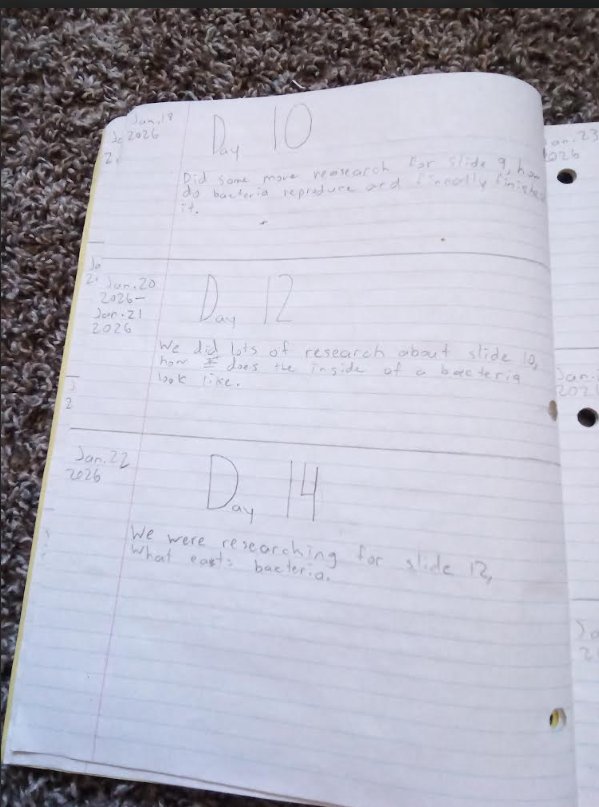 Jan. 18
2026
Day 10
Did some more research for slide 9, how
do bacteria reproduce and
it.
Jan. 20
2026-
Jan. 21
2026
Day 12
We did lots of research about slide 10,
how does the inside of a bacteria
look like.
Jan. 22
2026
Day 14
We were researching for slide 12,
What eats bacteria.